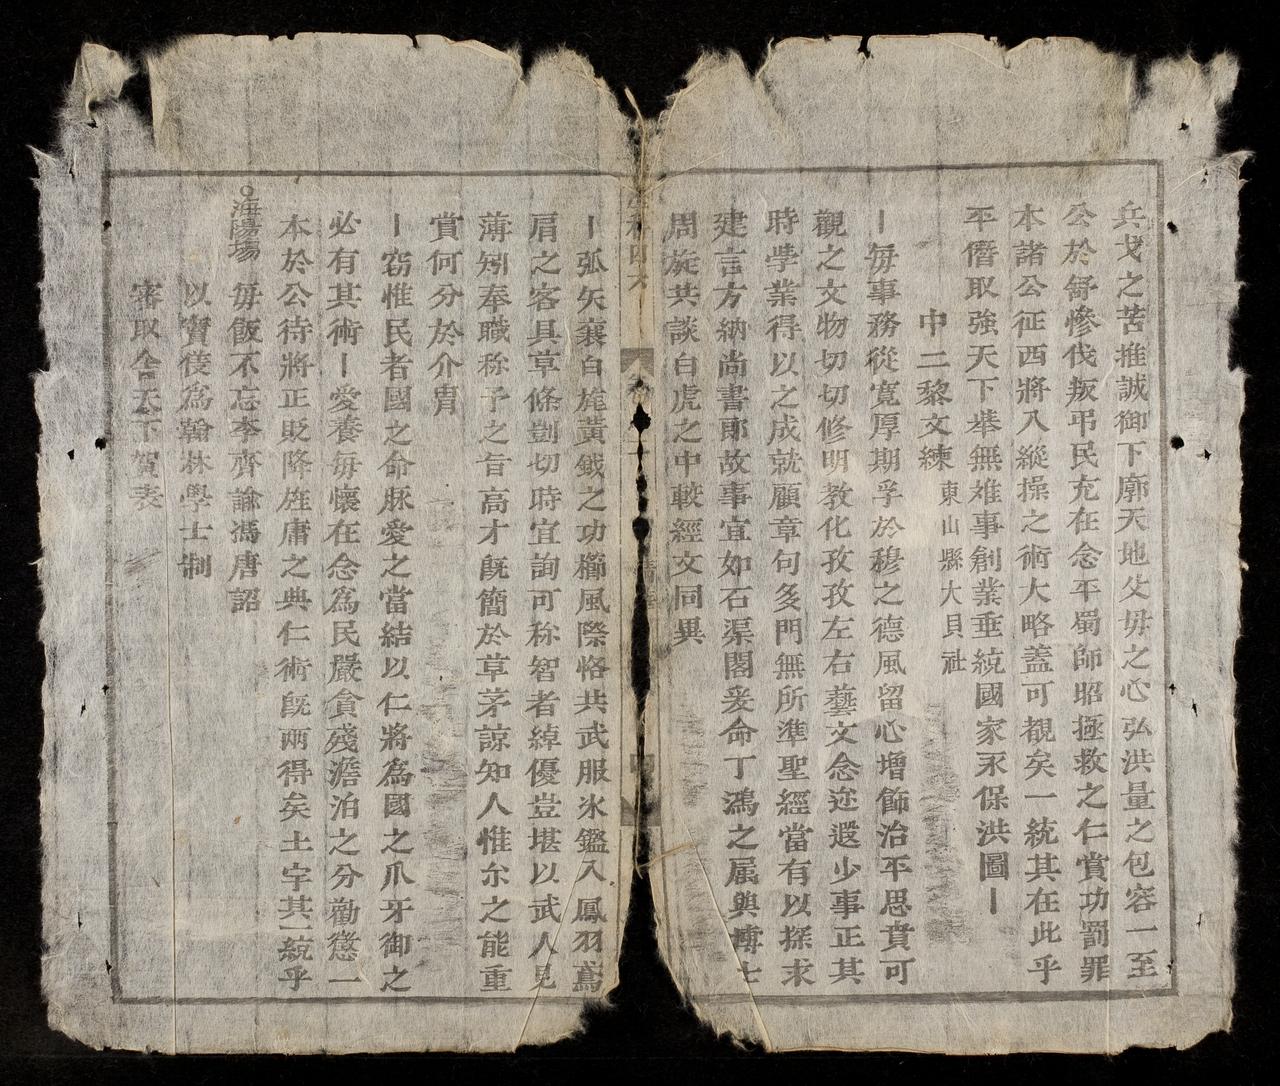 兵戈之苦推誠御下廓天地父毋之心弘洪量之包容一至
公於舒慘伐叛弔民充在念平蜀師昭拯救之仁賞功罰罪
本諸公征西將入縱操之術大略蓋可覩矣一統其在此乎
平僭取強天下舉無难事創業垂統國家永保洪圖｜
中二黎文練 東山縣大貝社
｜毎事務從寛厚期孚於穆之德風留心增飾治平思賁可
觀之文物切切修明教化孜孜左右藝文念迩遐少事正其
時學業得以之成就顧章句多門無所準聖經當有以探求
建言方納尚書郎故事宜如石渠閣爰命丁鴻之属與博士
周旋共談白虎之中較經文同異
四六
｜弧矢襄白旄黃鉞之功櫛風際恪共武服氷鑑入鳳羽鳶
肩之客具草條剴切時宜詢可称智者綽優豈堪以武人見
薄矧奉職称予之旨高才旣簡於草茅諒知人惟尒之能重
賞何分於介冑
｜窃惟民者國之命脉愛之當結以仁將為國之爪牙御之
必有其術｜愛養毎懷在念為民嚴貪殘澹泊之分勸懲一
本於公待將正貶降旌庸之典仁術旣两得矣土宇其一統乎
海陽場 毎飯不忘李齊論馮唐詔
以竇儀為翰林學士制
審取舍天下賀表